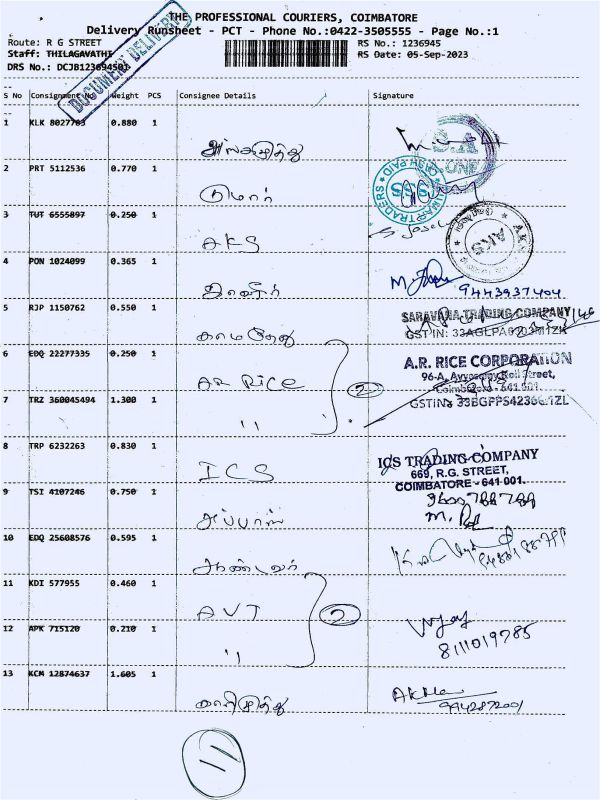 THE PROFESSIONAL COURIERS, COIMBATORE
Delivery Runsheet - PCT - Phone No.:0422-3505555 - Page No.:1
Route: R G STREET
RS No.: 1236945
Staff: THILAGAVATHI
RS Date: 05-Sep-2023
DRS No.: DCJB12369450
DOCUMENT DELIVERY
S No Consignment No Weight PCS Consignee Details Signature
1 KLK 8027703 0.880 1
2 PRT 5112536 0.770 1 குமார்
CASH PAID
3 TUT 6555897 0.250 1 AKS
AKS
4 PON 1024099 0.365 1
9443937404
5 RJP 1150762 0.550 1 காமதேனு
SARAVANA TRADING COMPANY
6 EDQ 22277335 0.250 1 AR Rice 2
A.R. RICE CORPORATION
Coimbatore - 641 001.
7 TRZ 360045494 1.300 1 "
8 TRP 6232263 0.830 1 ICS
ICS TRADING COMPANY
669, R.G. STREET,
COIMBATORE - 641 001.
9 TSI 4107246 0.750 1 அப்பாஸ்
10 EDQ 25608576 0.595 1 ஆண்டவர்
11 KDI 577955 0.460 1 AVT 2
12 APK 715120 0.210 1 "
Vijay
8111019785
13 KCM 12874637 1.605 1 காளிமுத்து
11